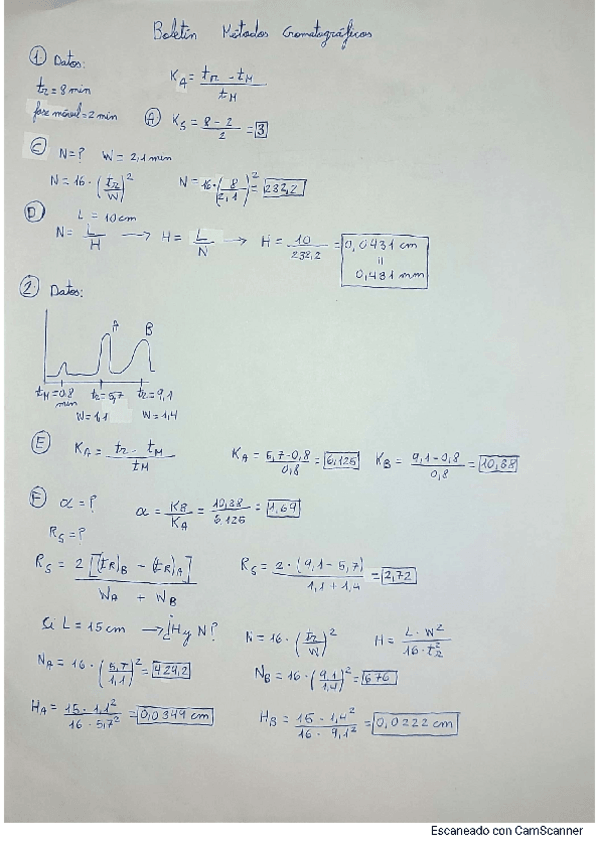 Boletín Métodos Cromatográficos
① Datos:
t_R = 8 min
K_A = (t_R - t_M) / t_M
fase móvil = 2 min
Ⓐ K_S = (8 - 2) / 2 = 3
Ⓒ N = ? W = 2,1 min
N = 16 · (t_R / W)² N = 16 · (8 / 2,1)² = 232,2
Ⓓ L = 10 cm
N = L / H → H = L / N → H = 10 / 232,2 = 0,0431 cm
=
0,431 mm
② Datos:
A B
t_M = 0,8 min t_R = 5,7 t_R = 9,1
W = 1,1 W = 1,4
Ⓔ K_A = (t_R - t_M) / t_M K_A = (5,7 - 0,8) / 0,8 = 6,125 K_B = (9,1 - 0,8) / 0,8 = 10,38
Ⓕ α = ? α = K_B / K_A = 10,38 / 6,125 = 1,69
R_S = ?
R_S = 2 [(t_R)_B - (t_R)_A] / (W_A + W_B) R_S = 2 · (9,1 - 5,7) / (1,1 + 1,4) = 2,72
Si L = 15 cm → ¿H y N? N = 16 · (t_R / W)² H = L · W² / (16 · t_R²)
N_A = 16 · (5,7 / 1,1)² = 429,2 N_B = 16 · (9,1 / 1,4)² = 676
H_A = 15 · 1,1² / (16 · 5,7²) = 0,0349 cm H_B = 15 · 1,4² / (16 · 9,1²) = 0,0222 cm
Escaneado con CamScanner